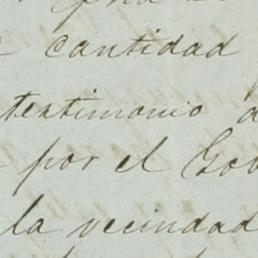 cantidad
testimonio
por el Gob
la vecindad